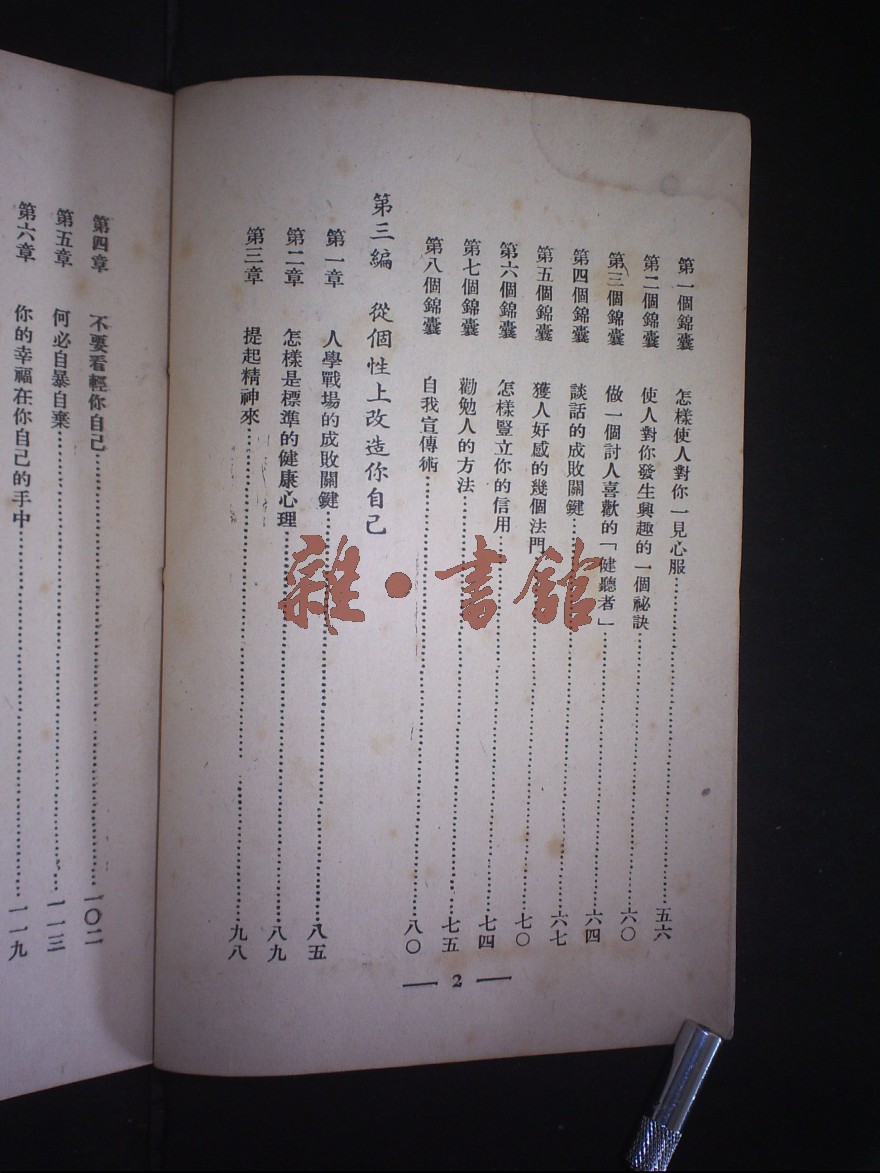 第一個錦囊 怎樣使人對你一見心服 五六
第二個錦囊 使人對你發生興趣的一個祕訣 六〇
第三個錦囊 做一個討人喜歡的「健聽者」 六四
第四個錦囊 談話的成敗關鍵 六七
第五個錦囊 獲人好感的幾個法門 七〇
第六個錦囊 怎樣豎立你的信用 七四
第七個錦囊 勸勉人的方法 七五
第八個錦囊 自我宣傳術 八〇
第三編 從個性上改造你自己
第一章 人學戰場的成敗關鍵 八五
第二章 怎樣是標準的健康心理 八九
第三章 提起精神來 九八
2
第四章 不要看輕你自己 一〇二
第五章 何必自暴自棄 一一三
第六章 你的幸福在你自己的手中 一一九
雜·書館